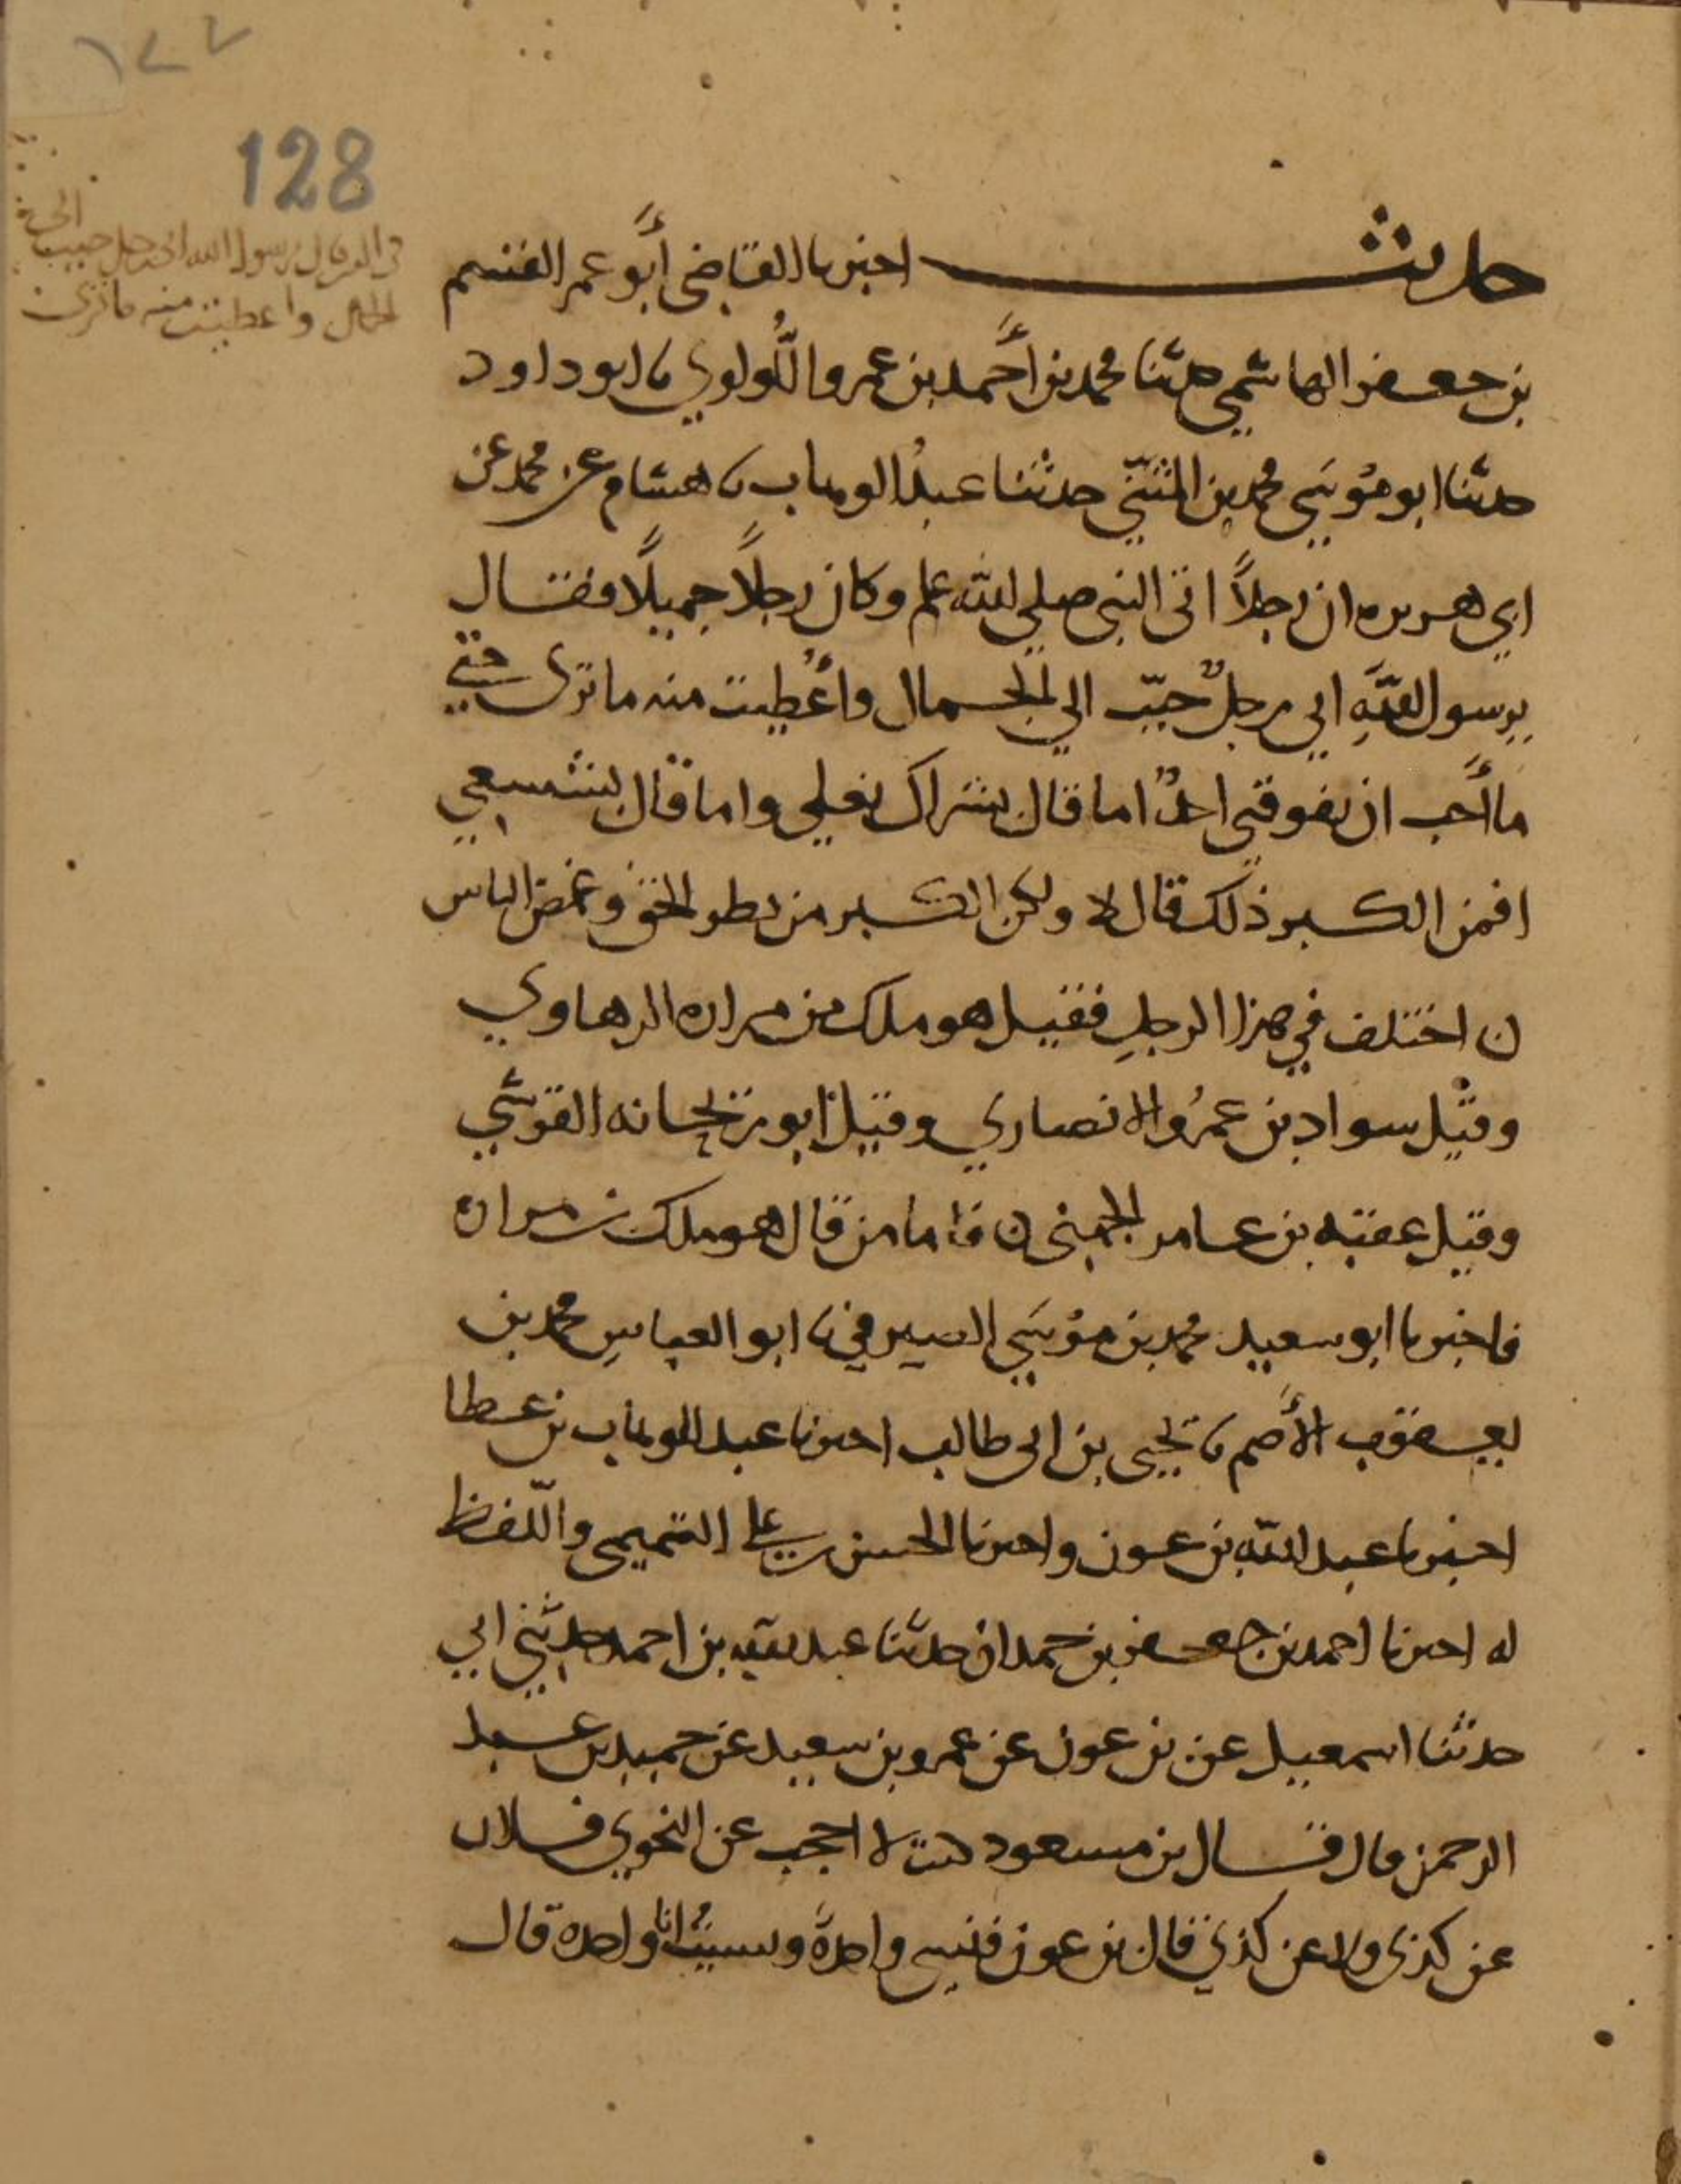 ١٢٧
128
الى
رسول الله انى رجل حبيب
الجمال واعطيت منه ما ترى
حديث اخبرنا القاضى أبو عمر القسم
بن جعفر الهاشمي حدثنا محمد بن أحمد بن عمرو اللُّولوي نا ابو داود
حدثنا ابو موسَي محمد بن المثنّي حدثنا عبدُ الوهاب نا هشام عن محمد عن
ابي هريره ان رجلاً اتى النبي صلي الله علم وكان رجلاً جميلًا فقال
يرسول اللَّهِ اني رجلٌ حبّب الي الجمال وأُعْطِيت منه ما ترى حتى
ما أُحب ان يفوقني احدٌ اما قال بشراك نعلي واما قال بشسعي
افمن الكبر ذلك قال لا ولكن الكبر من بطر الحق وغمض الناس
ن اختلف في هذا الرجلِ فقيل هو ملك من مراره الرهاوي
وقيل سواد بن عمرُو الانصاري وقيل ابو ريحانه القرشي
وقيل عقبه بن عامر الجهني ن فاما من قال هو ملك بن مراره
فاخبرنا ابو سعيد محمد بن موسَي الصيرفي نا ابو العباسِ محمد بن
يعقوب الأَصم نا يحيى بن ابى طالب اخبرنا عبد الوهاب بن عطا
اخبرنا عبد الله بن عون واخبرنا الحسن بن علي التميمى واللّفظ
له اخبرنا احمد بن جعفر بن حمدان حدثنا عبد الله بن احمد حدثني ابي
حدثنا اسمعيل عن بن عون عن عمرو بن سعيد عن حميد بن عبد
الرحمن قال قال بن مسعود كنت لا احجب عن النجوي فلان
عن كذى ولا عن كذي قال بن عون فنسي واحدةً ونسيتُ انا واحده قال